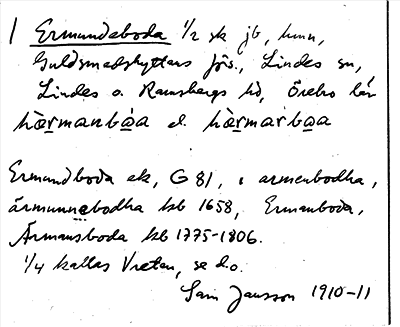 1 Ermundeboda 1/2 sk jb, hmn,
Guldsmedshyttans jfs., Lindes sn,
Lindes o. Ramsbergs hd, Örebro län
hærmanbωa el. hærmarbωa
Ermundboda ek, G 81, i armenbodha,
ärmunnebodha hb 1658, Ermanboda,
Ärmansboda hb 1775-1806.
1/4 kallas Vreten, se d.o.
Sam Jansson 1910-11